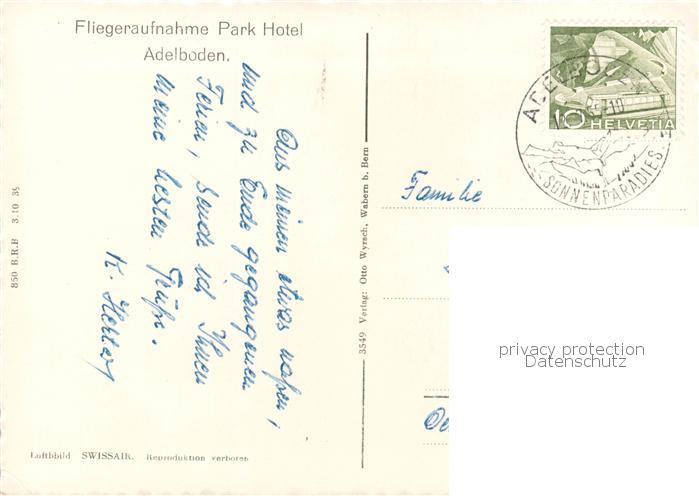 Fliegeraufnahme Park Hotel
Adelboden.
Aus meinen etwas naßen,
und zu Ende gegangenen
Ferien, sende ich Ihnen
meine besten Grüße.
K. Herter
850 B.R.B 3.10 35
Luftbild SWISSAIR. Reproduktion verboten
3549 Verlag: Otto Wyrsch, Wabern b. Bern
10 HELVETIA
ADELBODEN
SONNENPARADIES
Familie
privacy protection
Datenschutz